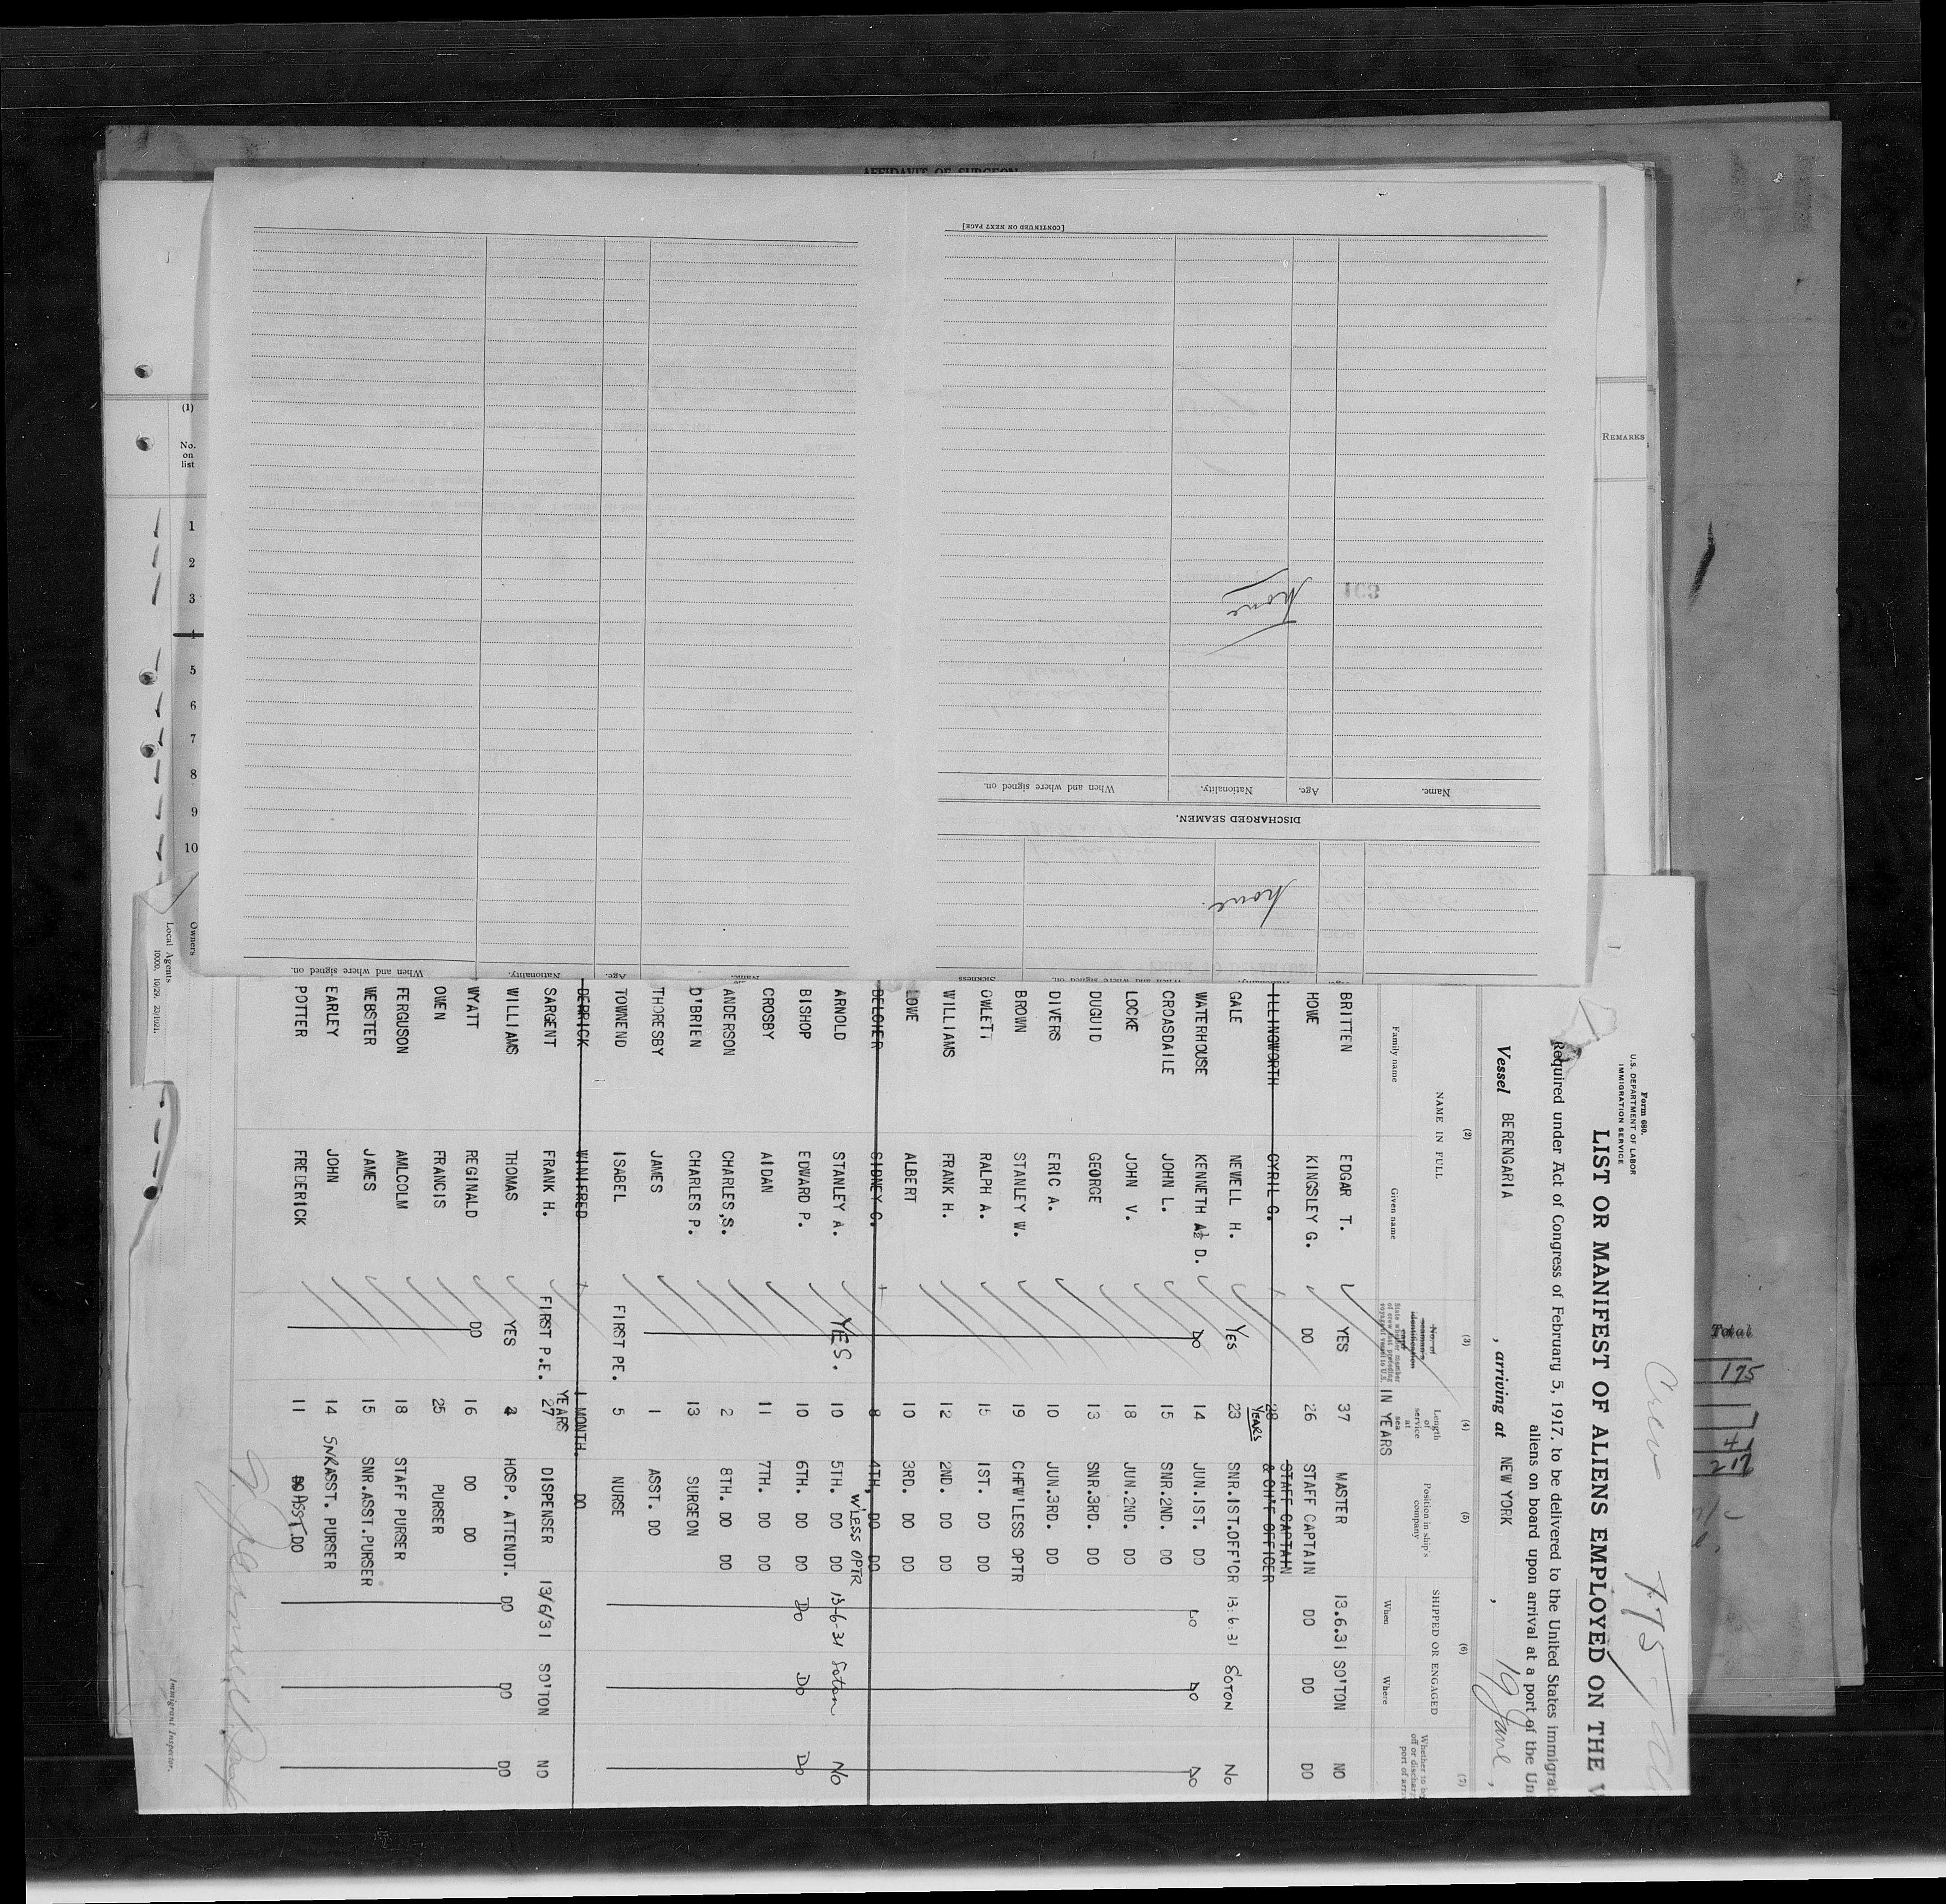 AFFIDAVIT OF SURGEON
[CONTINUED ON NEXT PAGE]
none
Name.
Age.
Nationality.
When and where signed on.
DISCHARGED SEAMEN.
none
Age.
Nationality.
When and where signed on.
Sickness
Age.
Nationality.
When and where signed on.
(1)
No. on list
1
2
3
4
5
6
7
8
9
10
Owners
Local Agents
REMARKS
Total
175
41
217
Crew
Form 680.
U.S. DEPARTMENT OF LABOR
IMMIGRATION SERVICE
LIST OR MANIFEST OF ALIENS EMPLOYED ON THE
Required under Act of Congress of February 5, 1917, to be delivered to the United States immigrat
aliens on board upon arrival at a port of the Un
Vessel BERENGARIA , arriving at NEW YORK , 19 June ,
(2) (3) (4) (5) (6) (7)
NAME IN FULL
Family name Given name
No. of seaman's identification card
State whether member of crew last preceding voyage of vessel to U.S.
Length of service at sea
IN YEARS
Position in ship's company
SHIPPED OR ENGAGED
When Where
BRITTEN EDGAR T. YES 37 MASTER 13.6.31 SO'TON NO
HOWE KINGSLEY G. DO 26 STAFF CAPTAIN DO DO DO
ILLINGWORTH CYRIL G. 28 STAFF CAPTAIN & CH'F OFFICER
YEARS
GALE NEWELL H. YES 23 SNR.1ST.OFF'CR 13.6.31 SOTON NO
WATERHOUSE KENNETH A½ D. DO 14 JUN.1ST. DO DO DO DO
CROASDAILE JOHN L. 15 SNR.2ND. DO
LOCKE JOHN V. 18 JUN.2ND. DO
DUGUID GEORGE 13 SNR.3RD. DO
DIVERS ERIC A. 10 JUN.3RD. DO
BROWN STANLEY W. 19 CHFW'LESS OPTR
OWLETT RALPH A. 15 1ST. DO DO
WILLIAMS FRANK H. 12 2ND. DO DO
LOWE ALBERT 10 3RD. DO DO
BELCHER SIDNEY C. 8 4TH. DO DO
W'LESS OPTR
ARNOLD STANLEY A. YES. 10 5TH. DO DO 13-6-31 Soton NO
BISHOP EDWARD P. 10 6TH. DO DO DO DO DO
CROSBY AIDAN 11 7TH. DO DO
ANDERSON CHARLES,S. 2 8TH. DO DO
O'BRIEN CHARLES P. 13 SURGEON
THORESBY JAMES 1 ASST. DO
TOWNEND ISABEL FIRST PE. 5 NURSE
DERRICK WINIFRED 1 MONTH. DO
YEARS
SARGENT FRANK H. FIRST P.E. 27 DISPENSER 13/6/31 SO'TON NO
WILLIAMS THOMAS YES HOSP. ATTENDT. DO DO DO
WYATT REGINALD DO 16 DO DO
OWEN FRANCIS 25 PURSER
FERGUSON AMLCOLM 18 STAFF PURSER
WEBSTER JAMES 15 SNR.ASST.PURSER
EARLEY JOHN 14 SNR ASST. PURSER
POTTER FREDERICK 11 ASST. DO
Immigrant Inspector.